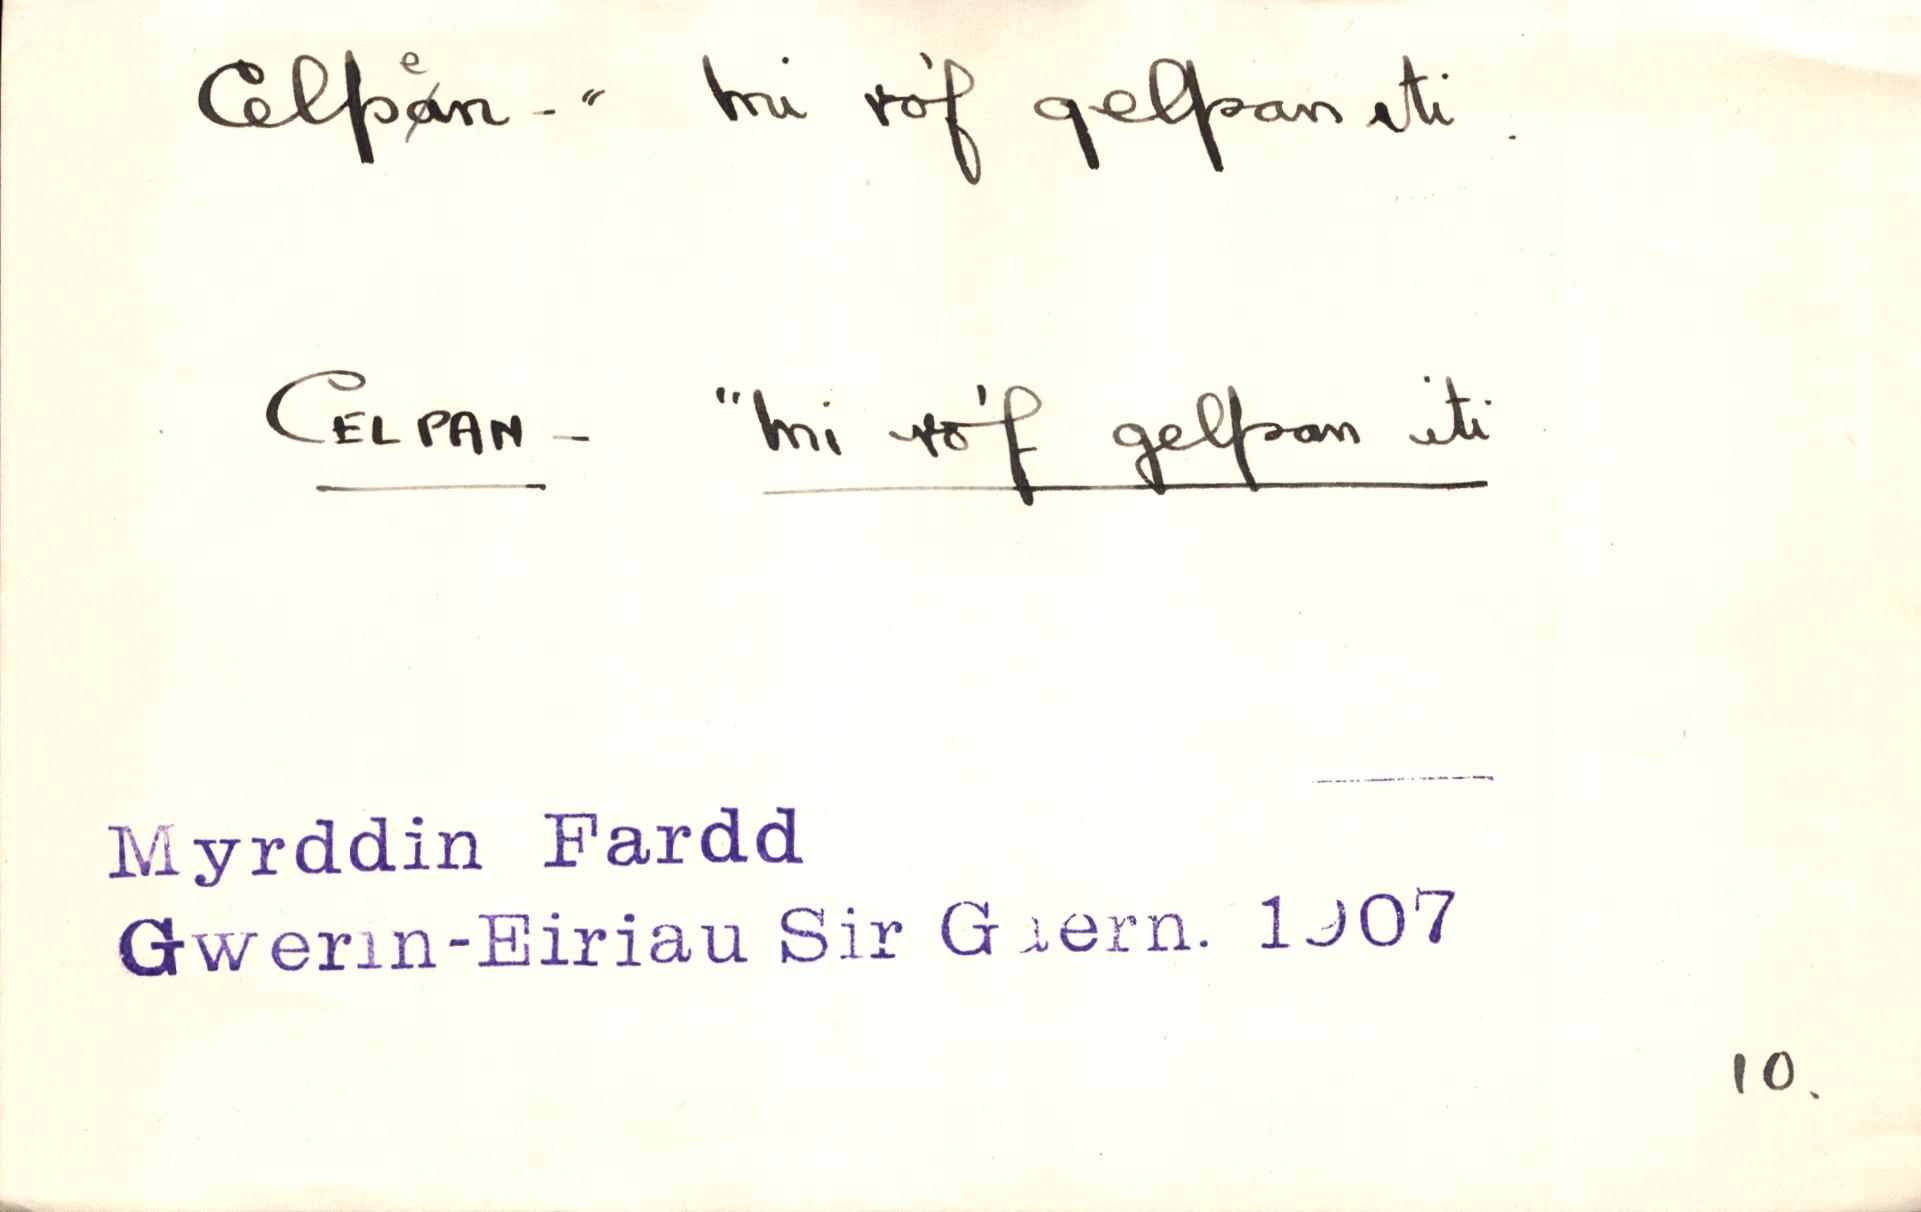 Celpen - " mi ro'f gelpan iti.
CELPAN - "mi ro'f gelpan iti
Myrddin Fardd
Gwerin-Eiriau Sir Gaern. 1907
10.